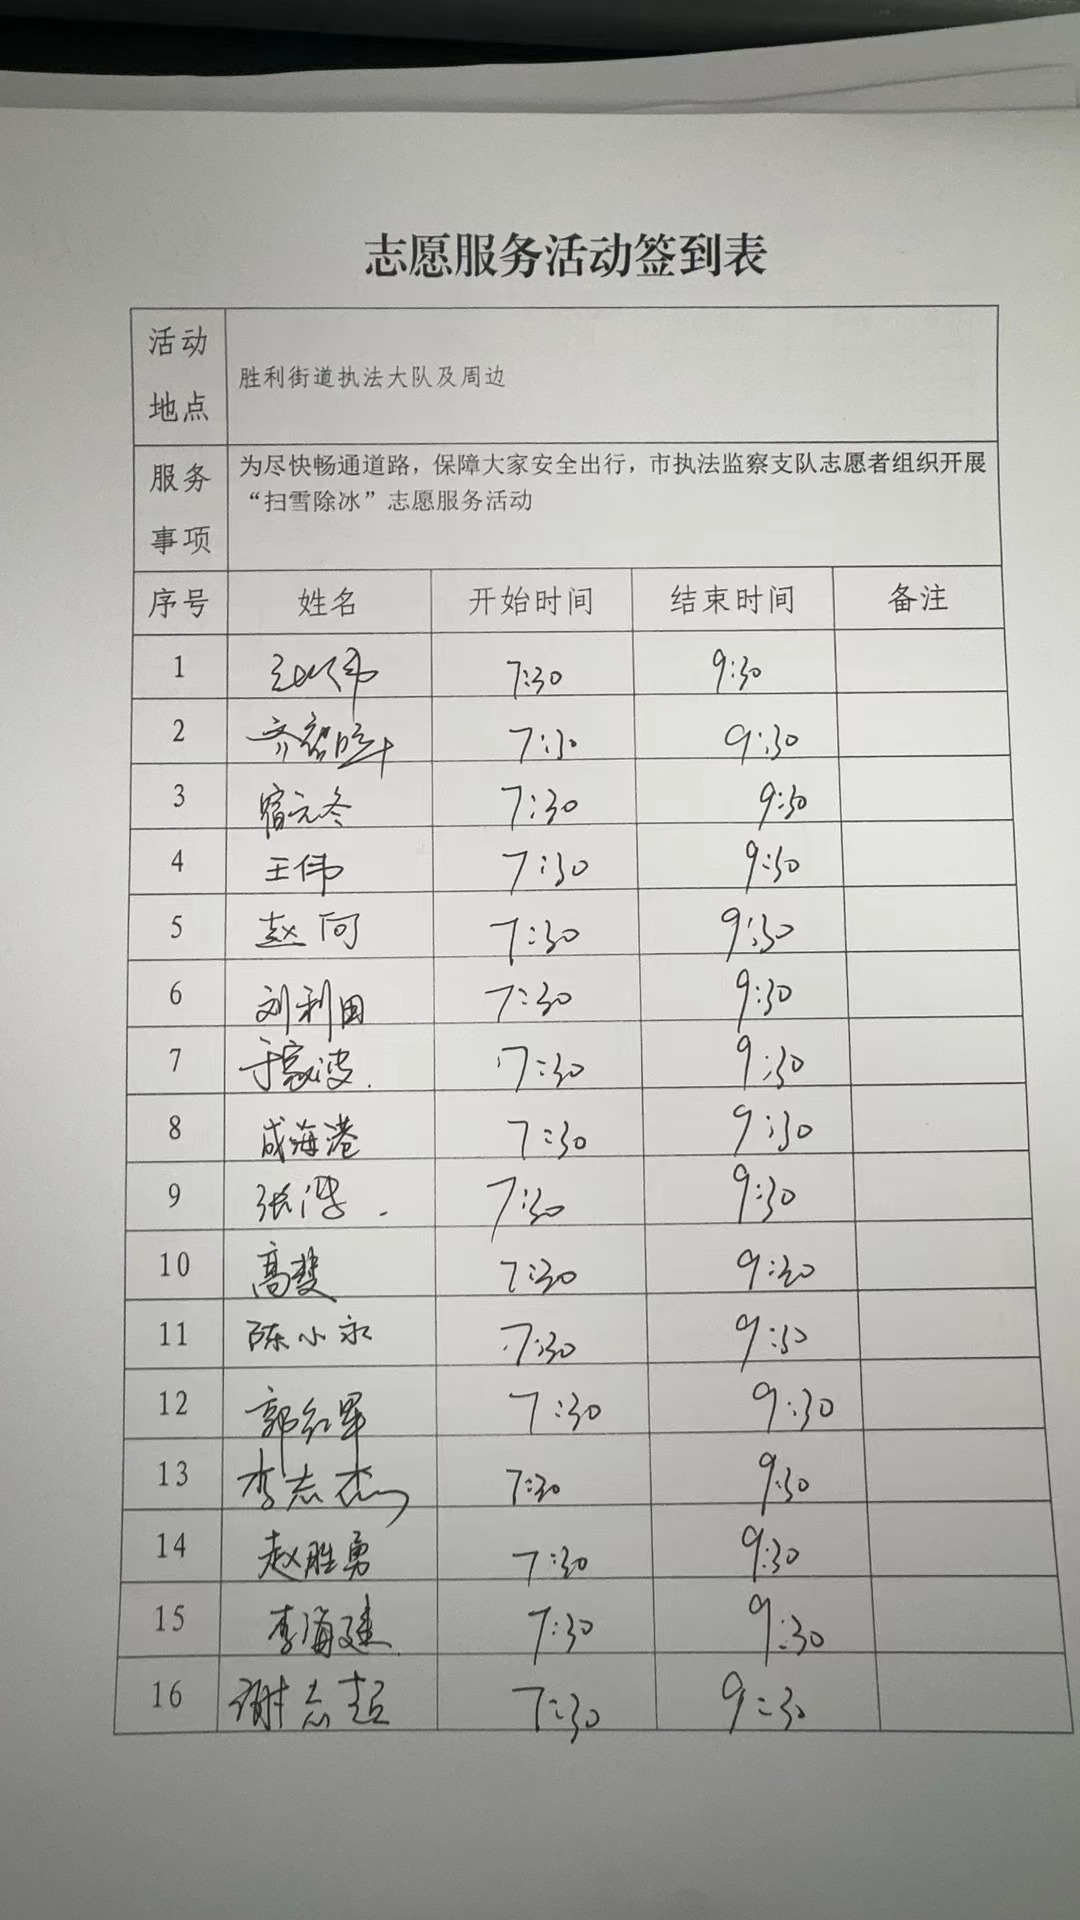 志愿服务活动签到表
活动地点 胜利街道执法大队及周边
服务事项 为尽快畅通道路，保障大家安全出行，市执法监察支队志愿者组织开展
“扫雪除冰”志愿服务活动
序号 姓名 开始时间 结束时间 备注
1 7:30 9:30
2 齐 7:30 9:30
3 宿元冬 7:30 9:30
4 王伟 7:30 9:30
5 赵何 7:30 9:30
6 刘利田 7:30 9:30
7 于家波 7:30 9:30
8 成海港 7:30 9:30
9 张 7:30 9:30
10 高斐 7:30 9:30
11 陈小永 7:30 9:30
12 郭红军 7:30 9:30
13 李志杰 7:30 9:30
14 赵胜勇 7:30 9:30
15 李海建 7:30 9:30
16 谢志超 7:30 9:30